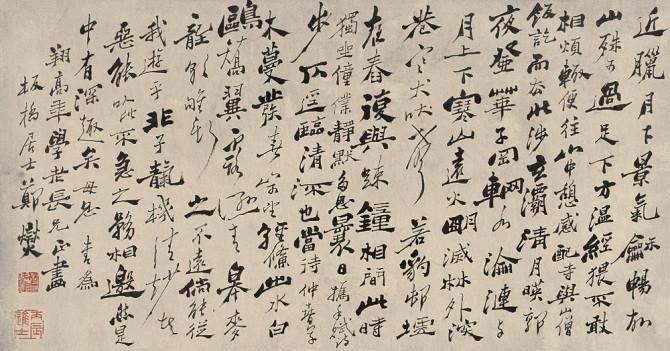 近臘月下景氣龢暢故
山殊可過足下方溫經猥不敢
相煩輒便往山中憩感配寺與山僧
飯訖而去北涉玄灞清月暎郭
夜登華子岡輞水淪漣與
月上下寒山遠火朙滅林外深
巷寒犬吠聲若豹邨墟
夜舂復與疎鐘相間此時
獨坐僮僕靜默多思曩日攜手賦詩
步仄逕臨清流也當待仲春草
木蔓發春山可望輕鯈出水白
鷗矯翼露濕青皋麥
隴朝雊斯之不遠倘能從
我遊乎非子天機清妙者
惡能以不急之務相邀然是
中有深趣矣毋忽 書為
翔高年學老長兄正畫
板橋居士鄭燮
丙辰進士